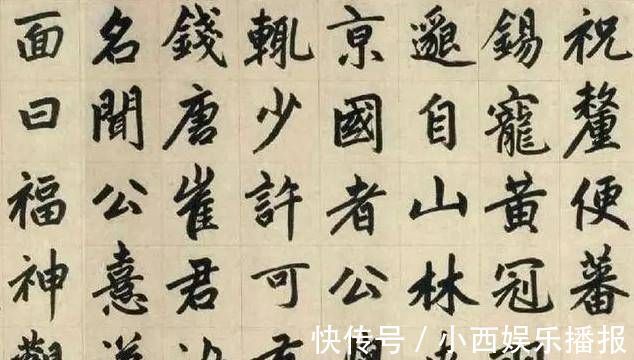 祝釐便蕃
錫寵黃冠
邈自山林
京國者公
輒少許可
錢唐崔君
名聞公憙
面曰福神觀
快传号 / 小西娱乐播报